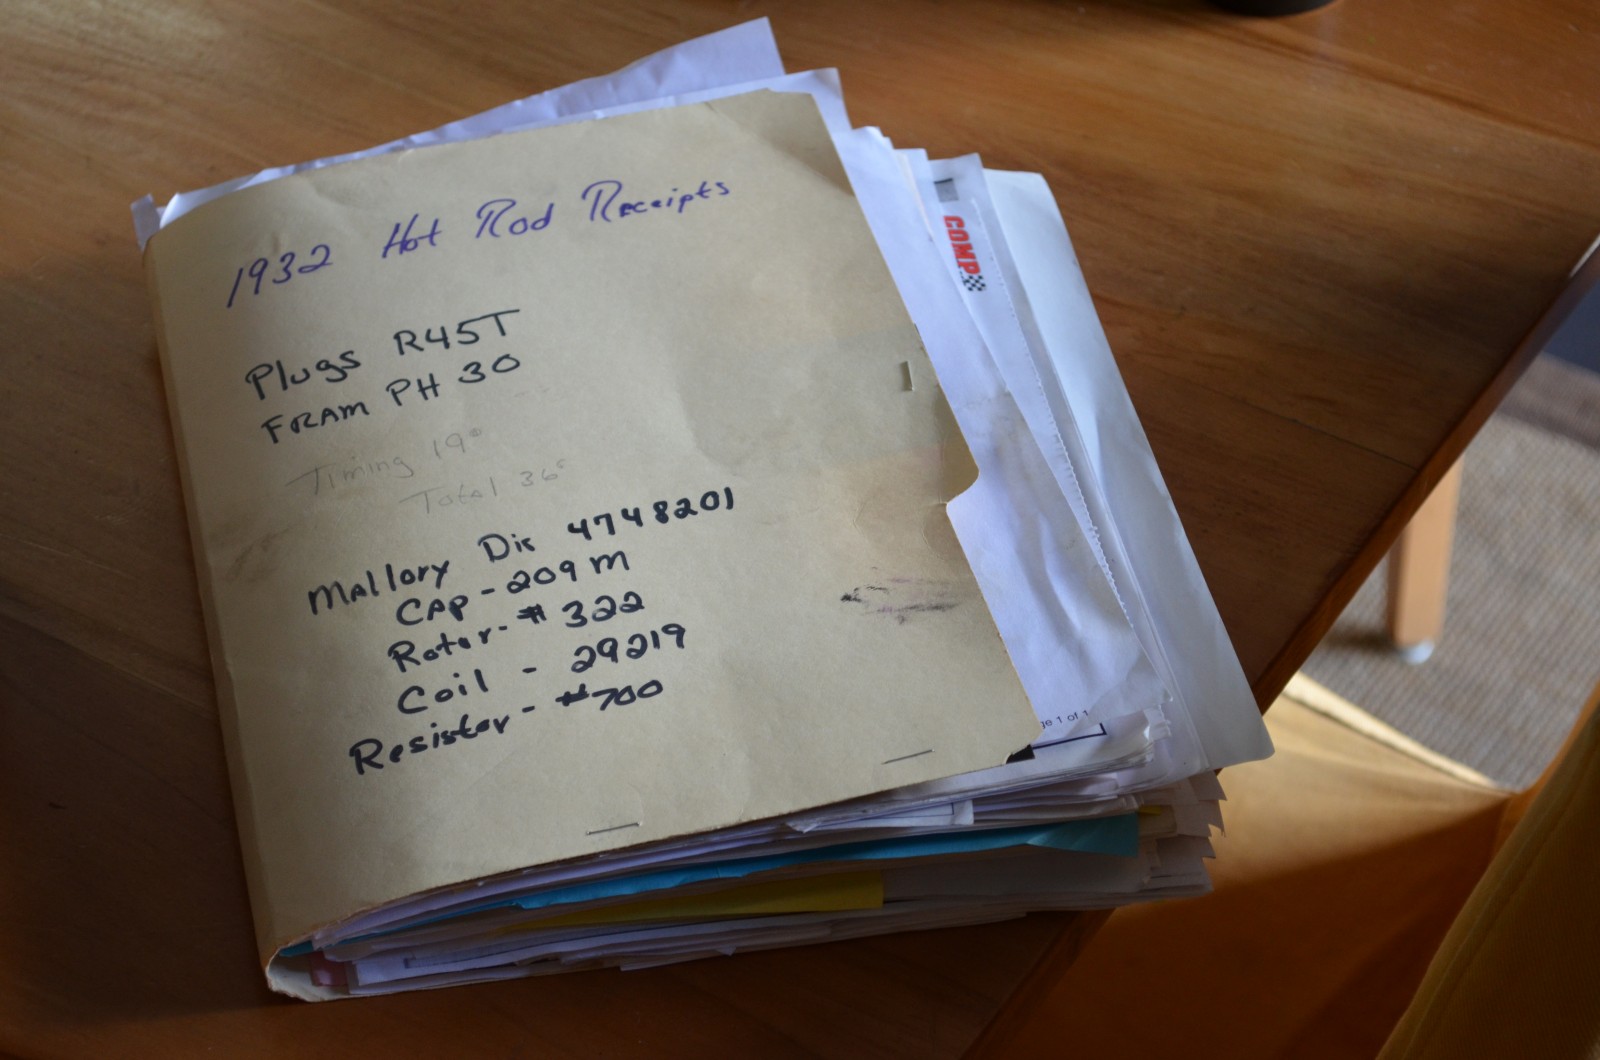 1932 Hot Rod Receipts
Plugs R45T
FRAM PH 30
Timing 19°
Total 36°
Mallory Dis 4748201
CAP - 209 M
Rotor - # 322
Coil - 29219
Resistor - #700
COMP
ge 1 of 1